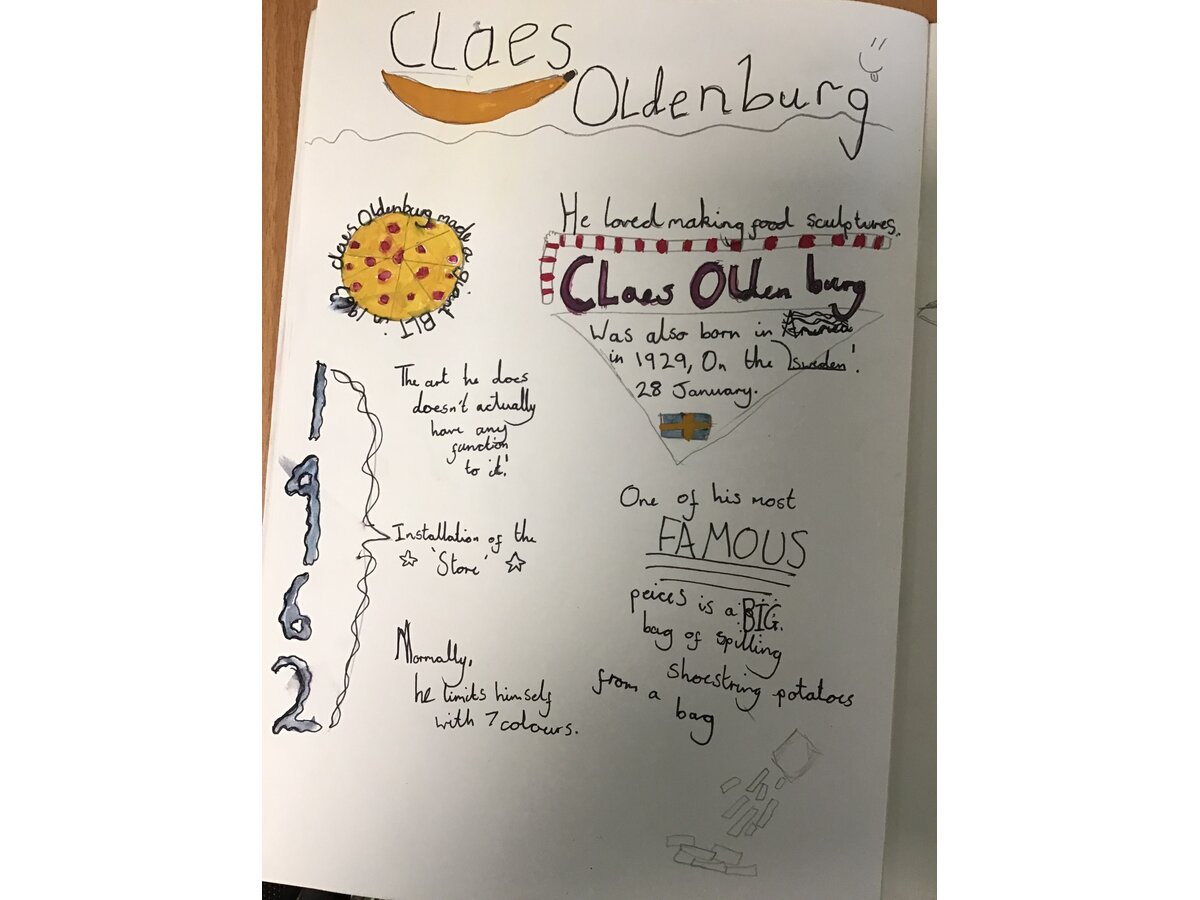 CLaes
OLdenburg
claes Oldenburg made a giant BLT in 196
He loved making food sculptures.
CLaes OLdenburg
Was also born in America
in 1929, On the sweden!
28 January.
1962
The art he does
doesn't actually
have any
function
to it!
Installation of the
'Store'
Normally,
he limits himself
with 7 colours.
One of his most
FAMOUS
peices is a BIG.
bag of spilling
shoestring potatoes
from a bag